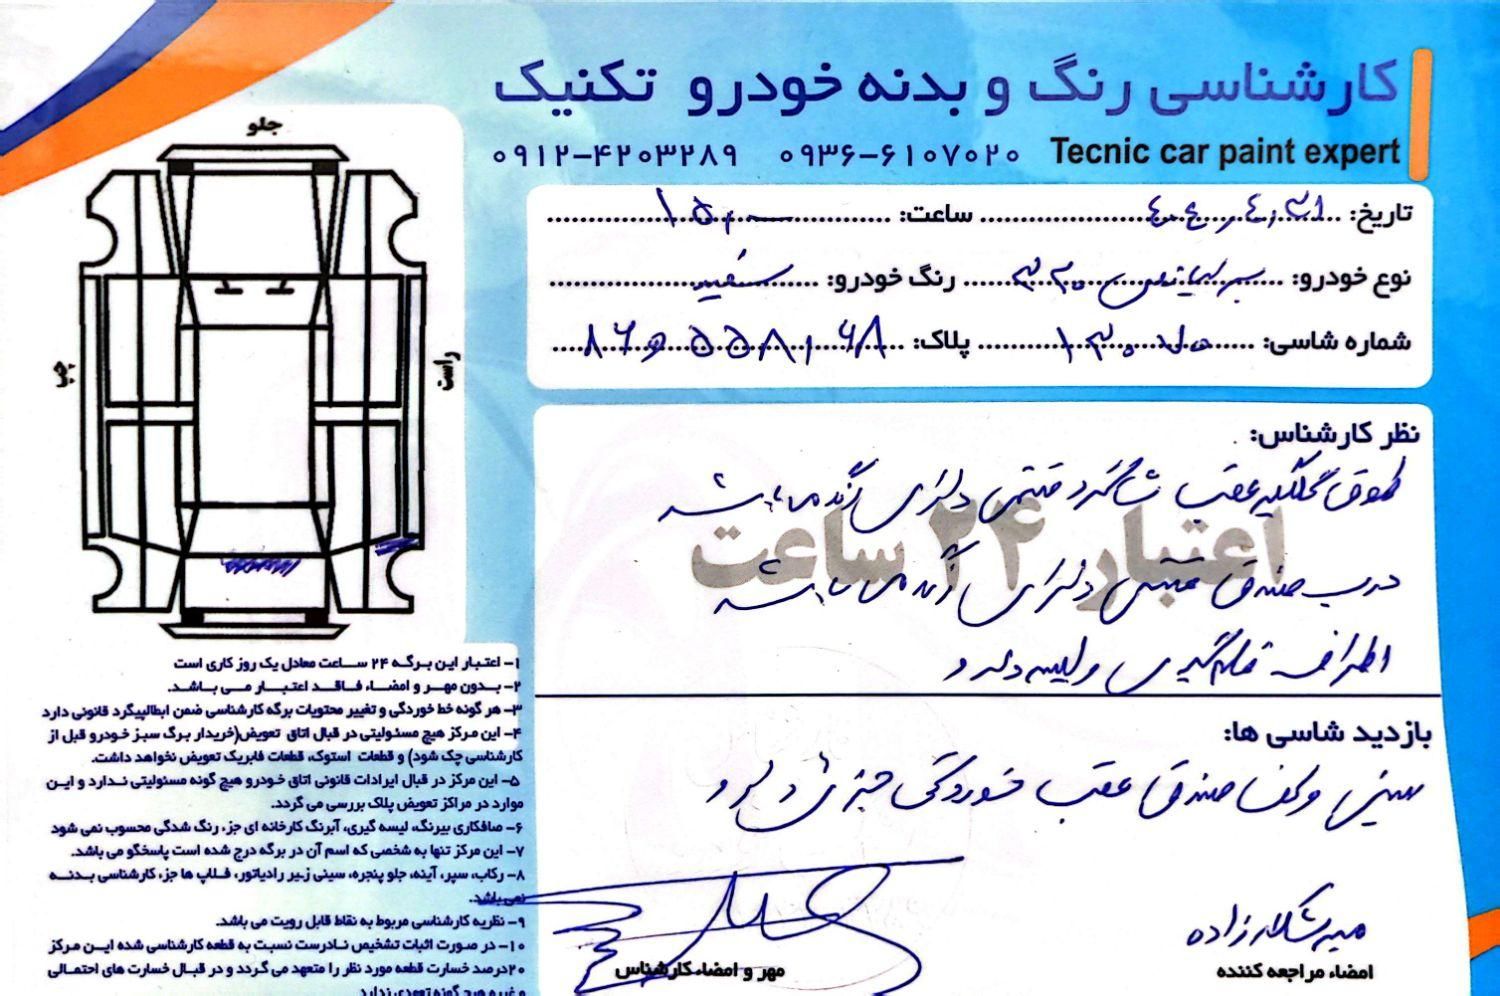 کارشناسی رنگ و بدنه خودرو تکنیک
Tecnic car paint expert
۰۹۳۶-۶۱۰۷۰۲۰ ۰۹۱۲-۴۲۰۳۲۸۹
تاریخ: ساعت: ۱۵:۰۰
نوع خودرو: برلیانس ۳۳۰ رنگ خودرو: سفید
شماره شاسی: پلاک:
نظر کارشناس:
گلگیر عقب شاگرد قسمتی دارای رنگ میباشد
درب صندوق قسمتی دارای رنگ میباشد
اطراف قلم‌گیری و لیسه دارد
اعتبار ۲۴ ساعت
بازدید شاسی ها:
سینی و کف صندوق عقب خوردگی جزئی دارد
میرشکارزاده
امضاء مراجعه کننده
مهر و امضاء کارشناس
جلو
چپ
راست
۱- اعتبار این برگه ۲۴ ساعت معادل یک روز کاری است
۲- بدون مهر و امضاء فاقد اعتبار می باشد.
۳- هر گونه خط خوردگی و تغییر محتویات برگه کارشناسی ضمن ابطالپیگرد قانونی دارد
۴- این مرکز هیچ مسئولیتی در قبال اتاق تعویض(خریدار برگ سبز خودرو قبل از
کارشناسی چک شود) و قطعات استوک، قطعات فابریک تعویض نخواهد داشت.
۵- این مرکز در قبال ایرادات قانونی اتاق خودرو هیچ گونه مسئولیتی ندارد و این
موارد در مراکز تعویض پلاک بررسی می گردد.
۶- صافکاری بیرنگ، لیسه گیری، آبرنگ کارخانه ای جزء رنگ شدگی محسوب نمی شود
۷- این مرکز تنها به شخصی که اسم آن در برگه درج شده است پاسخگو می باشد.
۸- رکاب، سپر، آینه، جلو پنجره، سینی زیر رادیاتور، فلاپ ها جزء کارشناسی بدنه
نمی باشد.
۹- نظریه کارشناسی مربوط به نقاط قابل رویت می باشد.
۱۰- در صورت اثبات تشخیص نادرست نسبت به قطعه کارشناسی شده این مرکز
۲۰درصد خسارت قطعه مورد نظر را متعهد می گردد و در قبال خسارت های احتمالی
و غیره هیچ گونه تعهدی ندارد